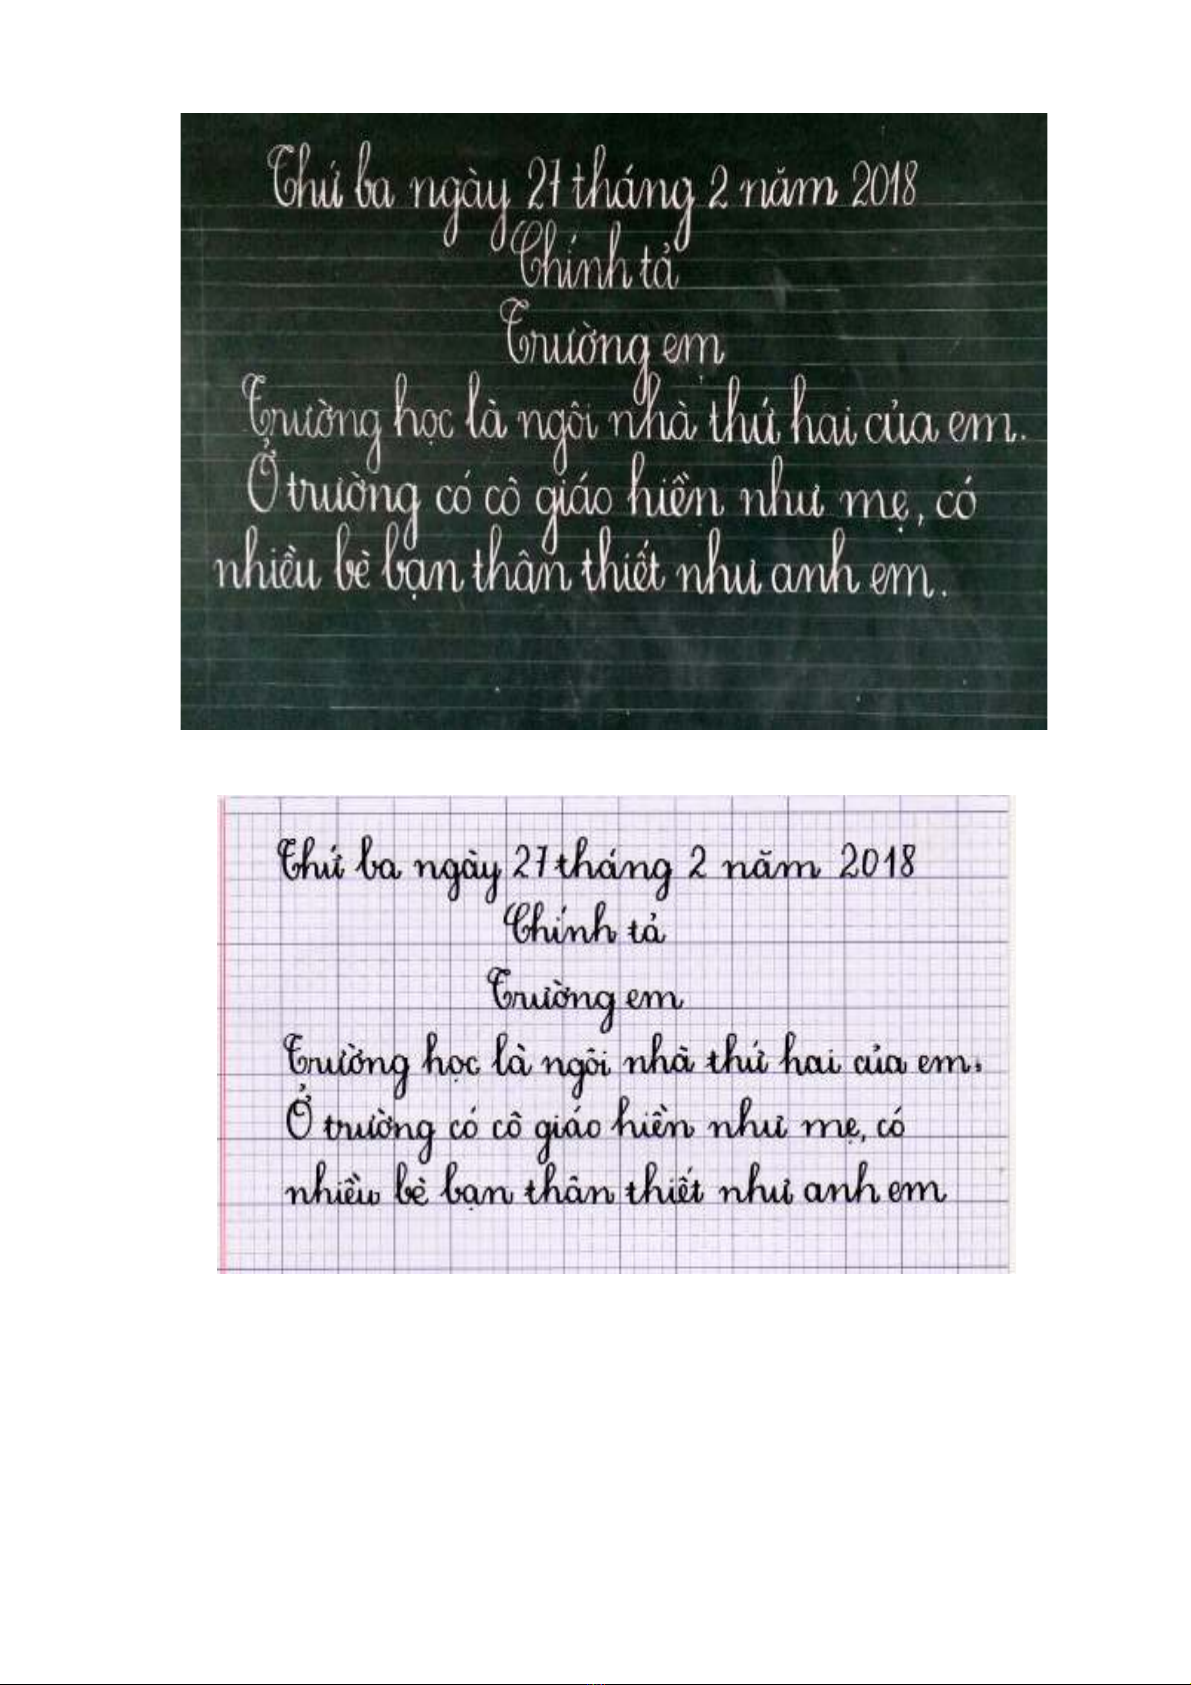 Thứ ba ngày 27 tháng 2 năm 2018
Chính tả
Trường em
Trường học là ngôi nhà thứ hai của em.
Ở trường có cô giáo hiền như mẹ, có
nhiều bè bạn thân thiết như anh em.
Thứ ba ngày 27 tháng 2 năm 2018
Chính tả
Trường em
Trường học là ngôi nhà thứ hai của em.
Ở trường có cô giáo hiền như mẹ, có
nhiều bè bạn thân thiết như anh em